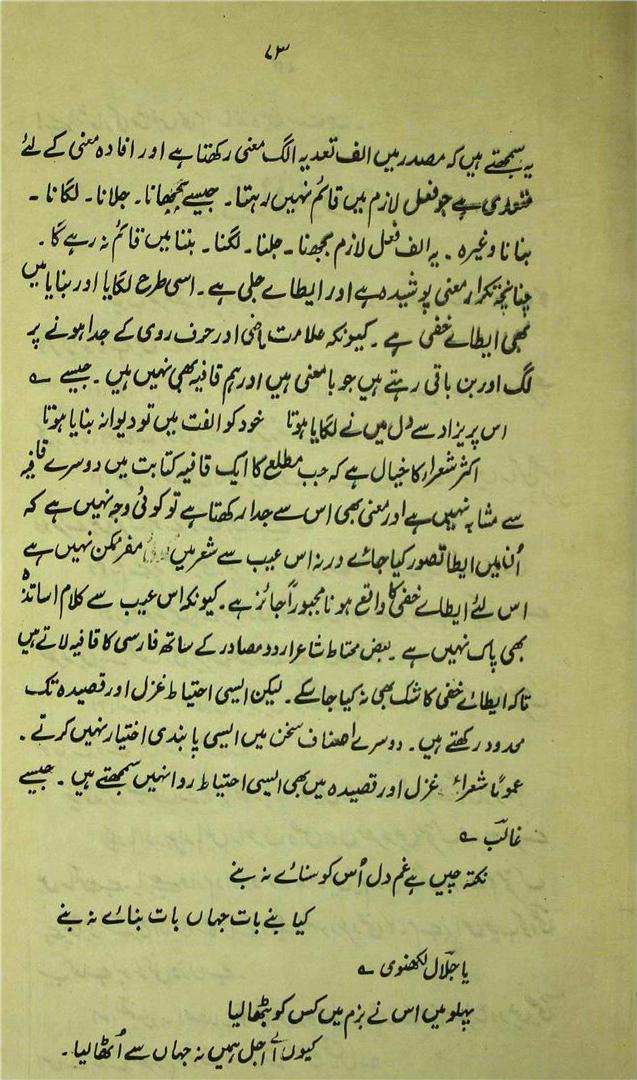 ۷۳
یہ سمجھتے ہیں کہ مصدر میں الف تعدیہ الگ معنی رکھتا ہے اور افادہ معنی کے لئے
متعدی ہے جو فعل لازم میں قائم نہیں رہتا۔ جیسے بجھانا۔ جلانا۔ لگانا ۔
بنانا وغیرہ ۔ یہ الف فعل لازم بجھنا ۔ جلنا۔ لگنا۔ بننا میں قائم نہ رہے گا ۔
چنانچہ تکرار معنی پوشیدہ ہے اور ایطاے جلی ہے ۔ اسی طرح لگایا اور بنایا میں
بھی ایطاے خفی ہے ۔ کیونکہ علامت ماضی اور حرف روی کے جدا ہونے پر
لگ اور بن باقی رہتے ہیں جو با معنی ہیں اور ہم قافیہ بھی نہیں ہیں ۔ جیسے ؎
اس پریزاد سے دل میں نے لگایا ہوتا خود کو الفت میں تو دیوانہ بنایا ہوتا
اکثر شعراء کا خیال ہے کہ جب مطلع کا ایک قافیہ کتابت میں دوسرے قافیہ
سے مشابہ نہیں ہے اور معنی بھی اس سے جدا رکھتا ہے تو کوئی وجہ نہیں ہے کہ
اُن میں ایطا تصور کیا جاے ورنہ اس عیب سے شعر میں مفر ممکن نہیں ہے
اس لئے ایطاے خفی کا واقع ہونا مجبوراً جائز ہے ۔ کیونکہ اس عیب سے کلام اساتذہ
بھی پاک نہیں ہے ۔ بعض محتاط شاعر اردو مصادر کے ساتھ فارسی کا قافیہ لاتے ہیں
تاکہ ایطاے خفی کا شک بھی نہ کیا جا سکے ۔ لیکن ایسی احتیاط غزل اور قصیدہ تک
محدود رکھتے ہیں ۔ دوسرے اصناف سخن میں ایسی پابندی اختیار نہیں کرتے ۔
عموماً شعراء غزل اور قصیدہ میں بھی ایسی احتیاط روا نہیں سمجھتے ہیں ۔ جیسے
غالب ؎
نکتہ چیں ہے غم دل اُس کو سناے نہ بنے
کیا بنے بات جہاں بات بناے نہ بنے
یا جلال لکھنوی ؎
پہلو میں اس نے بزم میں کس کو بٹھا لیا
کیوں اے اجل ہمیں نہ جہاں سے اُٹھا لیا ۔